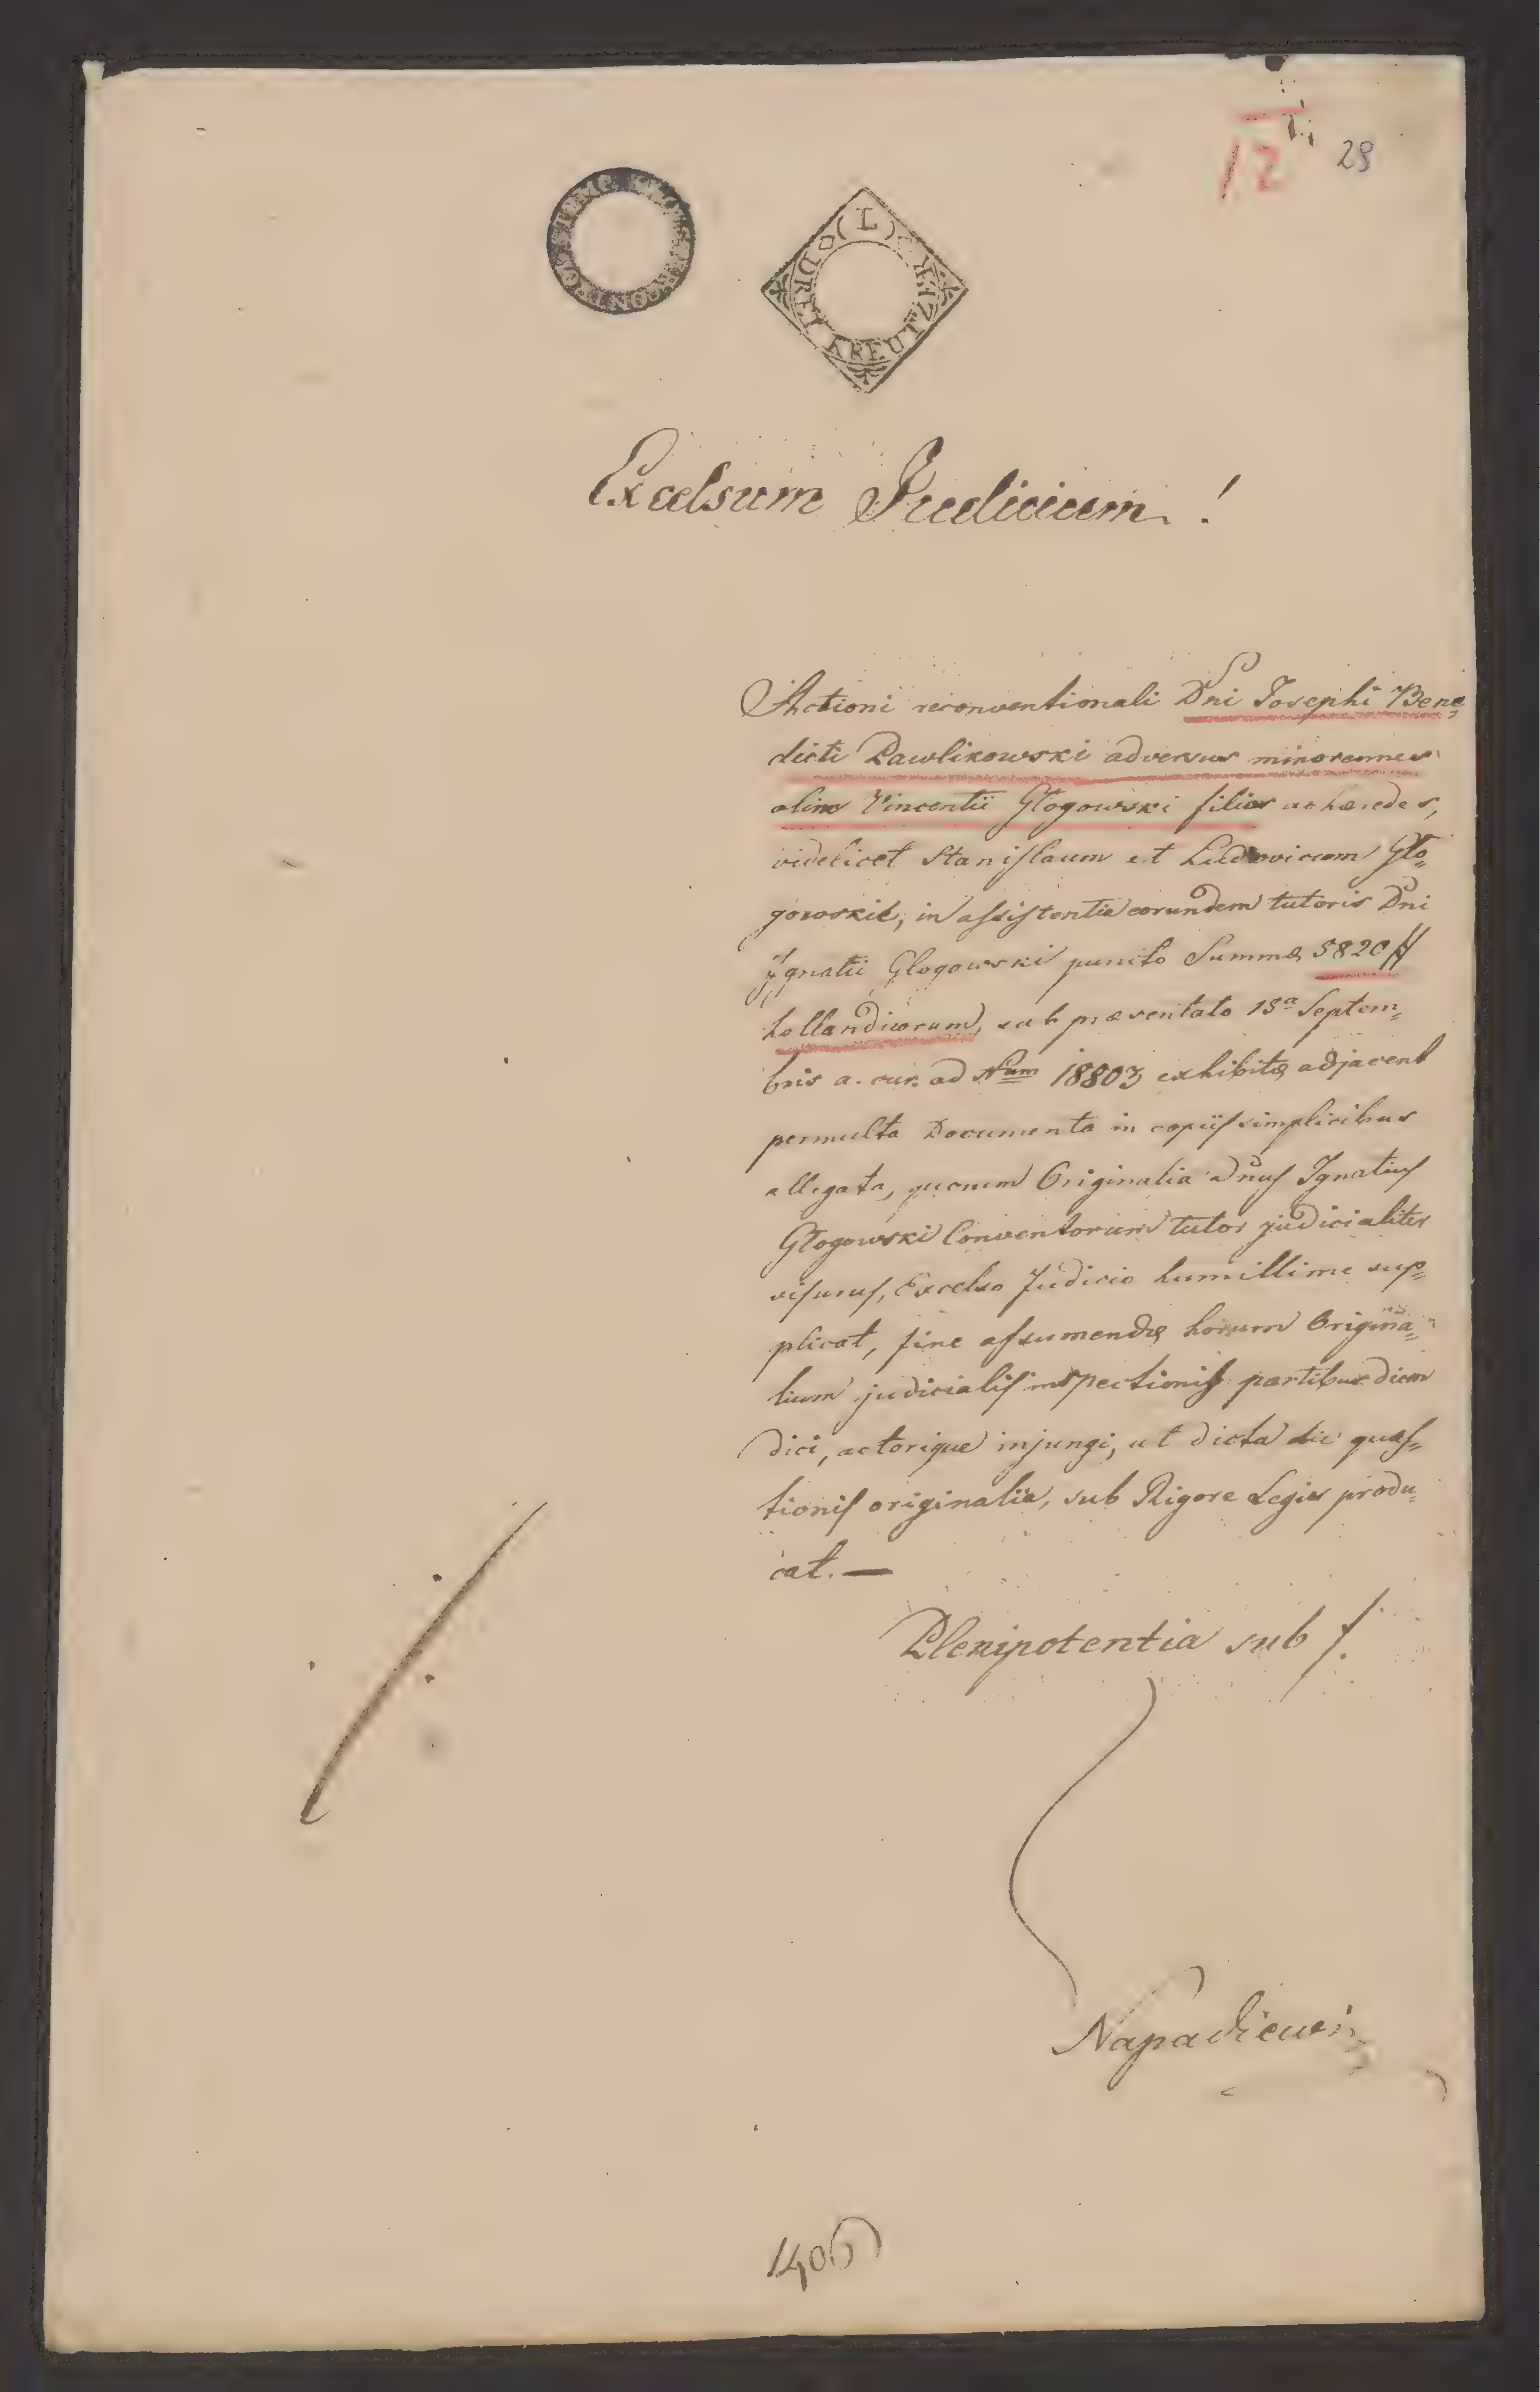 12
29
(L)
DREI KREUTZER
Excelsum Judicium !
Actioni reconventionali Dni Josephi Bene„
dicti Pawlikowski adversus minorennes
olim Vincentii Głogowski filios ac hæredes,
videlicet Stanislaum et Ludovicum Gło„
gowskie, in assistentia eorundem tutoris Dni
Ignatii Głogowski puncto Summæ 5820 #
hollandicorum, sub præsentato 15a Septem„
bris a. cur. ad Num 18803 exhibitæ adjacent
permulta Documenta in copiis simplicibus
allegata, quorum Originalia Dnus Ignatius
Głogowski Conventorum tutor judicialiter
visurus, Excelso Judicio humillime sup„
plicat, fine assumendæ horum Origina„
lium judicialis inspectionis partibus diem
dici, actorique injungi, ut dicta die quæs„
tionis originalia, sub Rigore Legis produ„
cat. —
Plenipotentia sub /.
1406